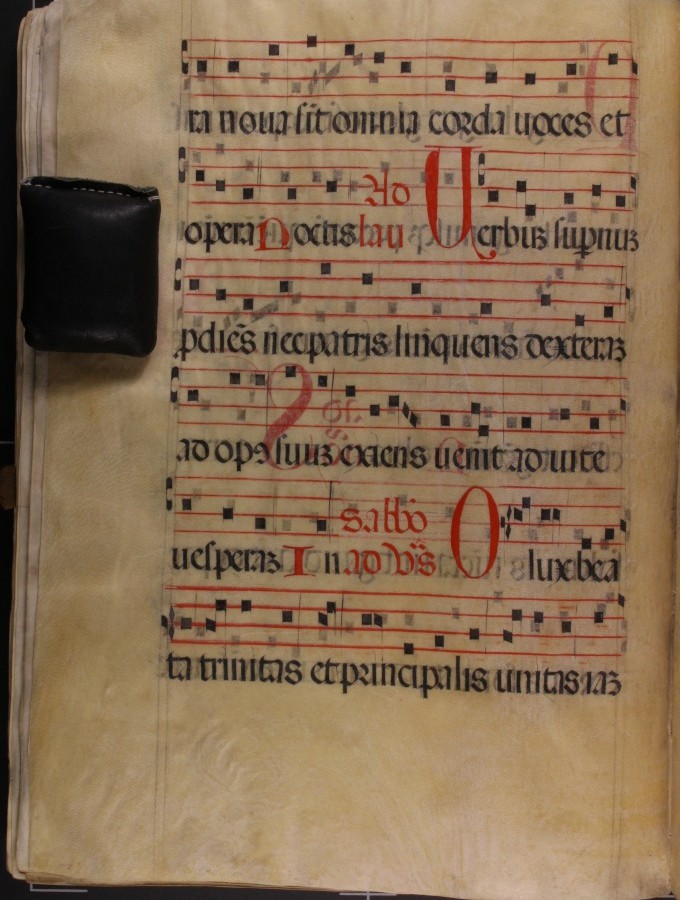 ra noua sit omnia corda uoces et
Ad
opera Noctis lau Uerbuꝫ supnuꝫ
pdiēs nec patris linquens dexteraꝫ
ad opꝰ suuꝫ exiens uenit ad uite
sabbō
uesperaꝫ In ad Vs̄ O lux bea
ta trinitas et principalis unitas iaꝫ